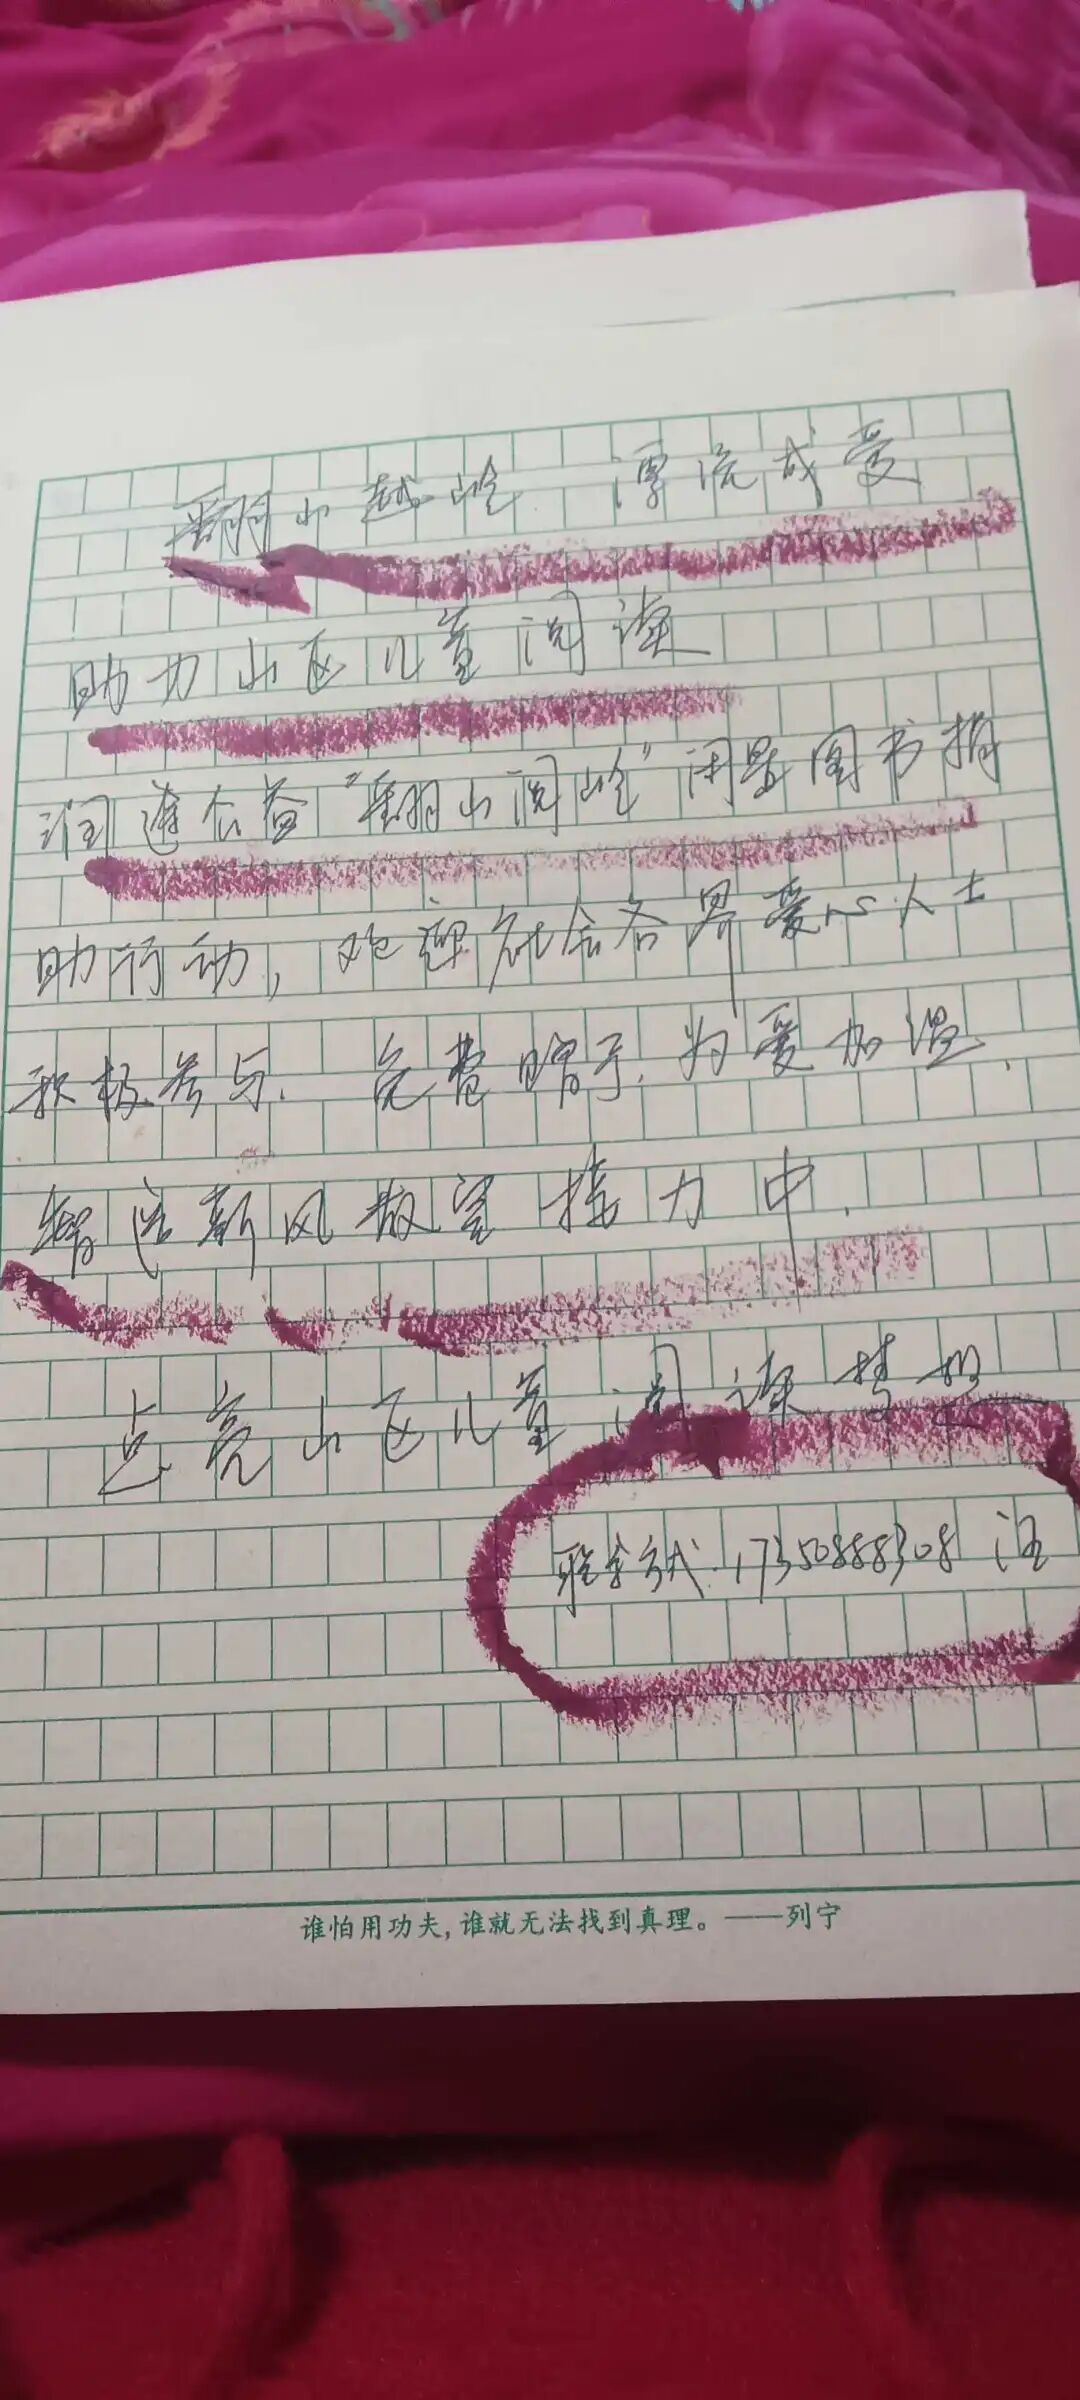 翻山越岭 漂流成爱
助力山区儿童阅读
润进公益“翻山阅岭”闲置图书捐
助行动,欢迎社会各界爱心人士
积极参与.免费赠予.为爱加温.
新风 接力中.
点亮山区儿童阅读梦想
联系方式:17350888308 汪
谁怕用功夫,谁就无法找到真理。——列宁